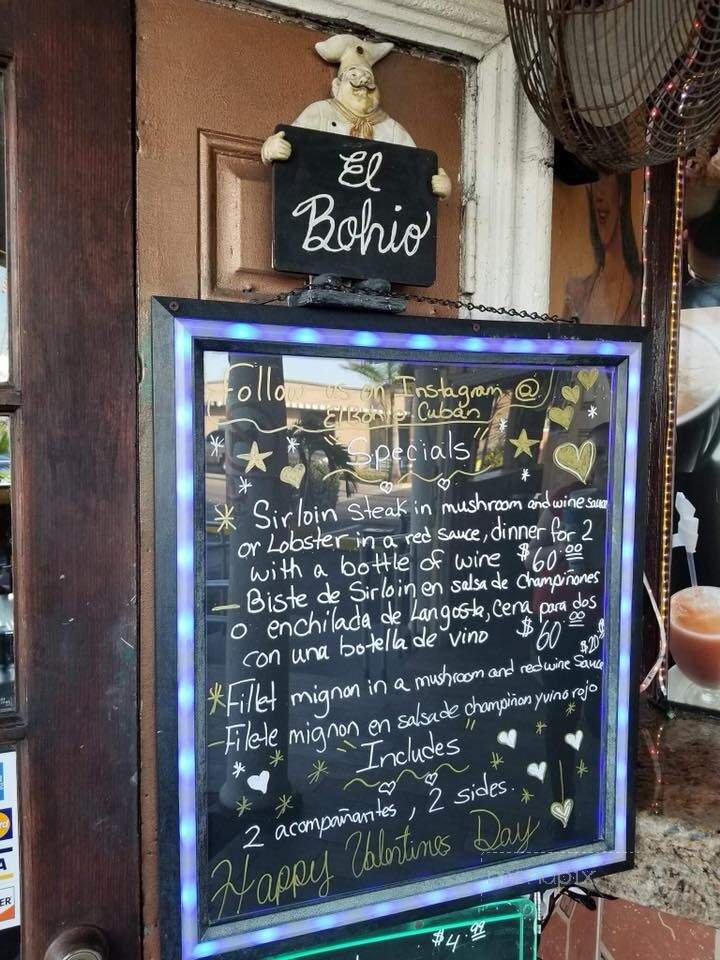 El
Bohio
Follow us on Instagram @
El Bohio Cuban
"Specials"
Sirloin Steak in mushroom and wine sauce
or Lobster in a red sauce, dinner for 2
with a bottle of wine $60.00
- Biste de Sirloin en salsa de champiñones
o enchilada de Langosta, cena para dos
con una botella de vino $60.00
$20
Fillet mignon in a mushroom and red wine sauce
- Filete mignon en salsa de champiñon y vino rojo
"Includes"
2 acompañantes, 2 sides.
Happy Valentines Day
$4.99